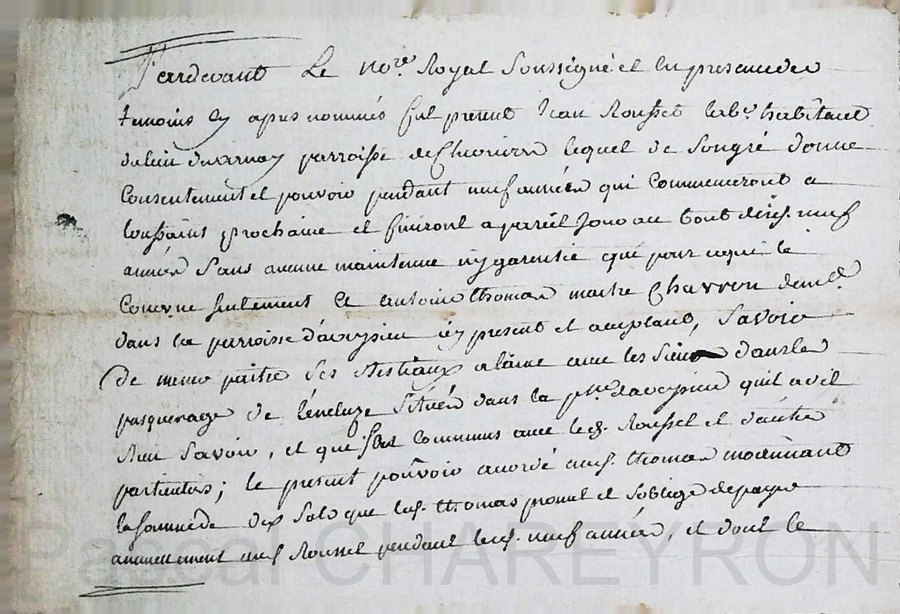 Pardevant Le no.re Royal Soussigné et En presence des
temoins Cy apres nommés fut present Jean Rousset lab.r habitant
du lieu duvernay parroisse de lequel de Son gré donne
Consentement et pouvoir pendant neuf années qui Commenceront a
toussaints prochaine et finiront a pareil Jour au bout desd. neuf
années Sans aucune maintenue ny garentie que pour ce qui le
Concerne seulement a antoine thomas maitre Charron dem.t
dans la parroisse d'aveysieu icy present et acceptant, Savoir
De mener paitre Ses Bestiaux a laine avec les Siens dans le
pasquerage de Situés dans la p.sse daveysieu quil a dit
bien Savoir, et que sont Communs avec led. Rousset et d'autres
particuliers; le present pouvoir accordé aud. thomas moiennant
la somme de dix Sols que led. thomas promet et s'oblige de payer
annuelement aud. Rousset pendant lesd. neuf années, et dont le
Pascal CHAREYRON